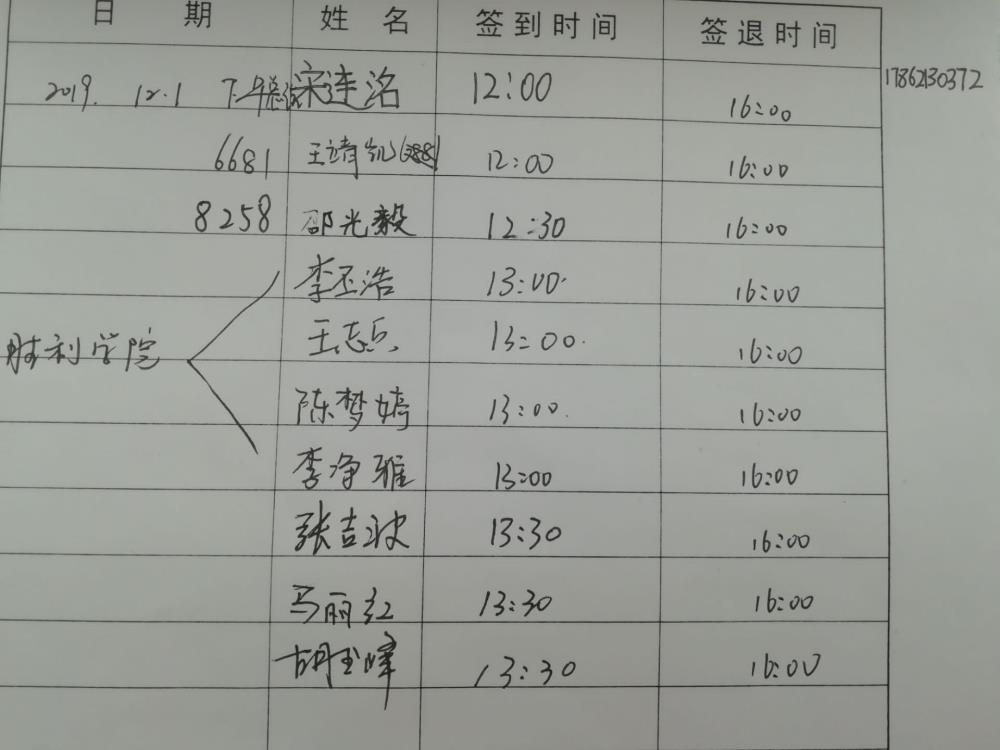 日 期 姓 名 签到时间 签退时间
2019. 12.1 下午 宋连洺 12:00 16:00 17862130372
6681 王靖凯 12:00 16:00
8258 邵光毅 12:30 16:00
李丕浩 13:00 16:00
胜利学院 王志兵 13:00 16:00
陈梦婷 13:00 16:00
李净雅 13:00 16:00
张吉波 13:30 16:00
马丽红 13:30 16:00
胡玉峰 13:30 16:00